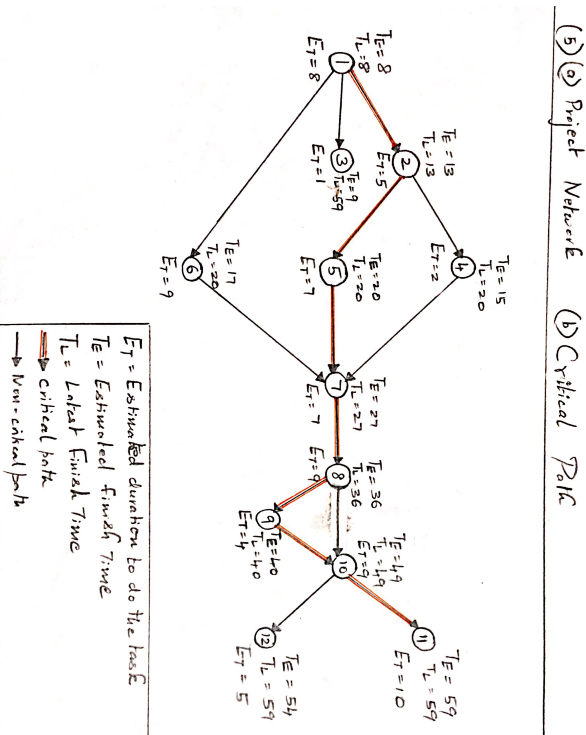 (5) (a) Project Network (b) Critical Path
TE=8
TL=8
1
ET=8
TE=13
TL=13
2
ET=5
3
TE=9
TL=59
ET=1
TE=15
TL=20
4
ET=2
TE=20
TL=20
5
ET=7
TE=17
TL=20
6
ET=9
TE=27
TL=27
7
ET=7
TE=36
TL=36
8
ET=9
9
TE=40
TL=40
ET=4
TE=49
TL=49
ET=9
10
11
TE=59
TL=59
ET=10
12
TE=54
TL=59
ET=5
ET = Estimated duration to do the task
TE = Estimated finish Time
TL = Latest Finish Time
critical path
Non-critical path